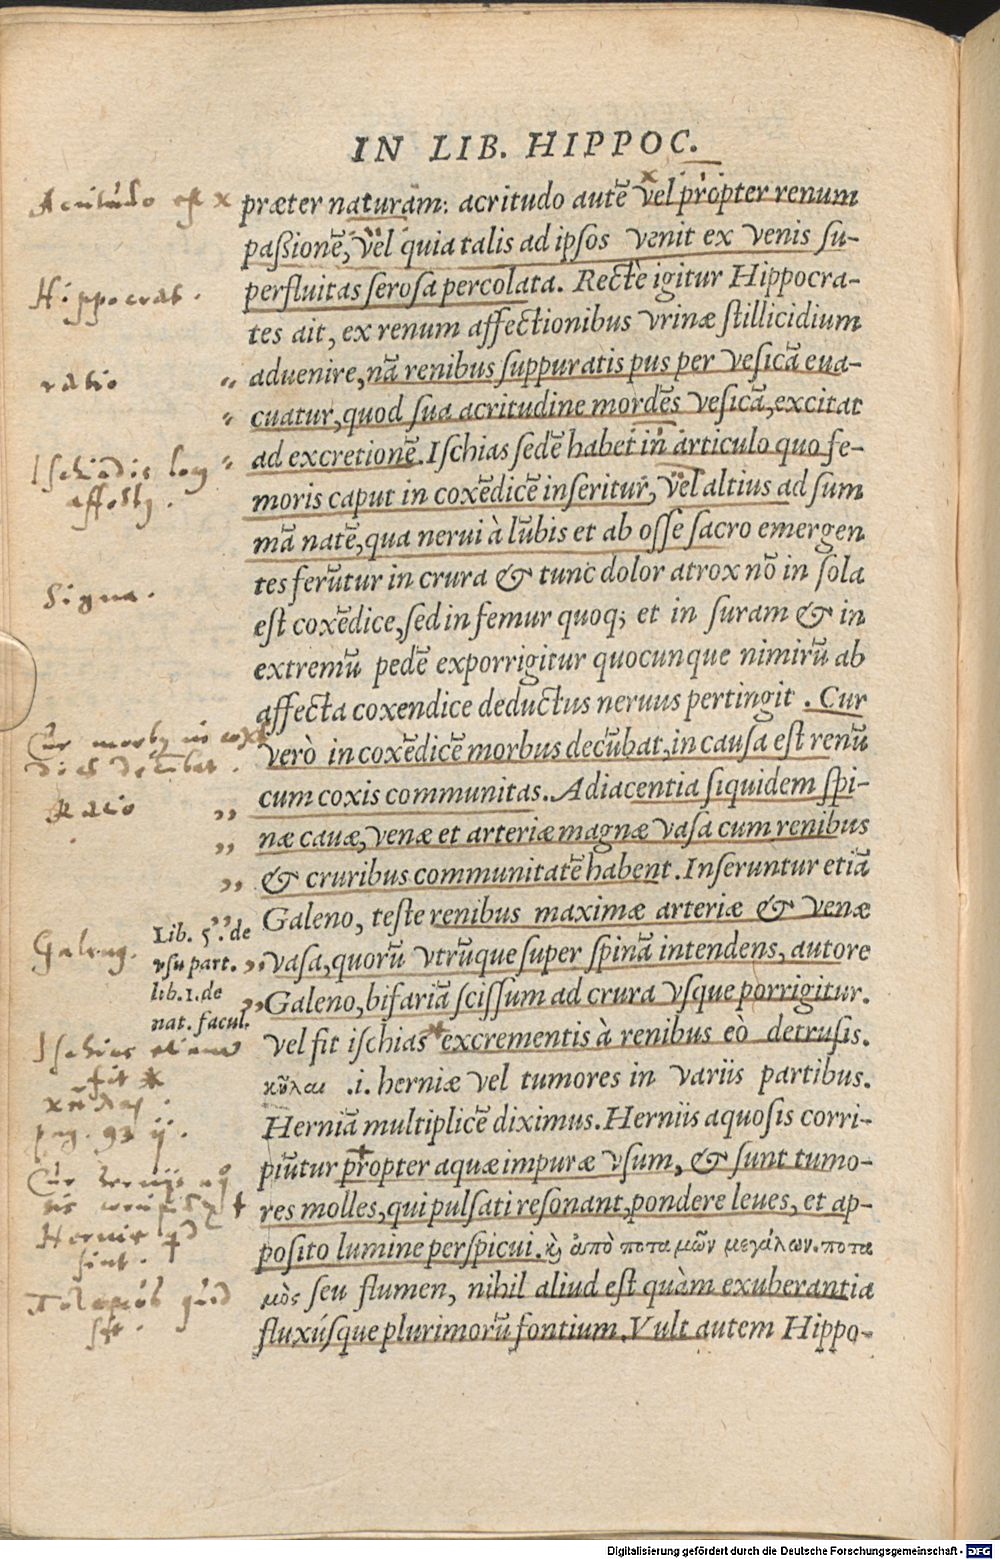 IN LIB. HIPPOC.
præter naturam: acritudo autē vel propter renum
paßionē, vel quia talis ad ipsos venit ex venis su-
perfluitas serosa percolata. Rectè igitur Hippocra-
tes ait, ex renum affectionibus vrinæ stillicidium
aduenire, nā renibus suppuratis pus per vesicā eua-
cuatur, quod sua acritudine mordēs vesicā, excitat
ad excretionē. Ischias sedē habet in articulo quo fe-
moris caput in coxēdicē inseritur, vel altius ad sum
mā natē, qua nerui à lūbis et ab osse sacro emergen
tes ferūtur in crura & tunc dolor atrox nō in sola
est coxēdice, sed in femur quoq; et in suram & in
extremū pedē exporrigitur quocunque nimirū ab
affecta coxendice deductus neruus pertingit. Cur
verò in coxēdicē morbus decūbat, in causa est renū
cum coxis communitas. Adiacentia siquidem spi-
næ cauæ, venæ et arteriæ magnæ vasa cum renibus
& cruribus communitatē habent. Inseruntur etiā
Galeno, teste renibus maximæ arteriæ & venæ
vasa, quorū vtrūque super spinā intendens, autore
Galeno, bifariā scissum ad crura vsque porrigitur.
Vel fit ischias excrementis à renibus eò detrusis.
κῦλαι .i. herniæ vel tumores in variis partibus.
Herniā multiplicē diximus. Herniis aquosis corri-
piūtur propter aquæ impuræ vsum, & sunt tumo-
res molles, qui pulsati resonant, pondere leues, et ap-
posito lumine perspicui. κ̀ ἀπὸ ποταμῶν μεγάλων. ποτα
μὸς seu flumen, nihil aliud est quàm exuberantia
fluxúsque plurimorū fontium. Vult autem Hippo-
Acritudo est x
Hippocrat.
ratio
Ischiadis locus
affectus.
Signa.
Cur morbus in coxē
dicē decūbat.
Ratio
Galenus.
Lib. 5. de
vsu part.
lib. 1. de
nat. facul.
Ischias etiam
fit
pag. 93
Cur herniis aquo
sis
Herniæ qd
sint.
quid
sit.
Digitalisierung gefördert durch die Deutsche Forschungsgemeinschaft - DFG